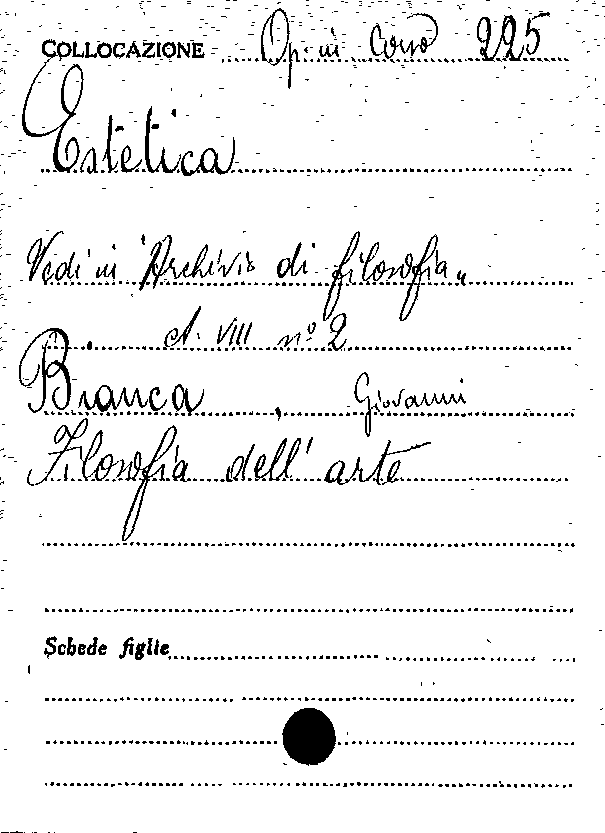 COLLOCAZIONE Op. in Corso 225
Estetica
Vedi in "Archivio di filosofia"
A. VIII n° 2
Branca, Giovanni
Filosofia dell'arte
Schede figlie